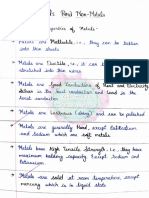 ls And Non-Metals
Properties of Metals-
Metals are Malleable i.e., they can be beaten
into thin sheets
Metals are Ductile, i.e., it can be
stretched into thin wires
Metals are Good Conductors of Heat and Electricity
Silver is the best conductor and lead is the
Metals are Lustrous (shiny) and can be polished
Metals are generally Hard, except Lithium
and Sodium which are soft metals.
Metals have High Tensile Strength, i.e., they have
maximum holding capacity Except Sodium and
Potassium.
Metals are Solid at room temperature, except
mercury which is in liquid state